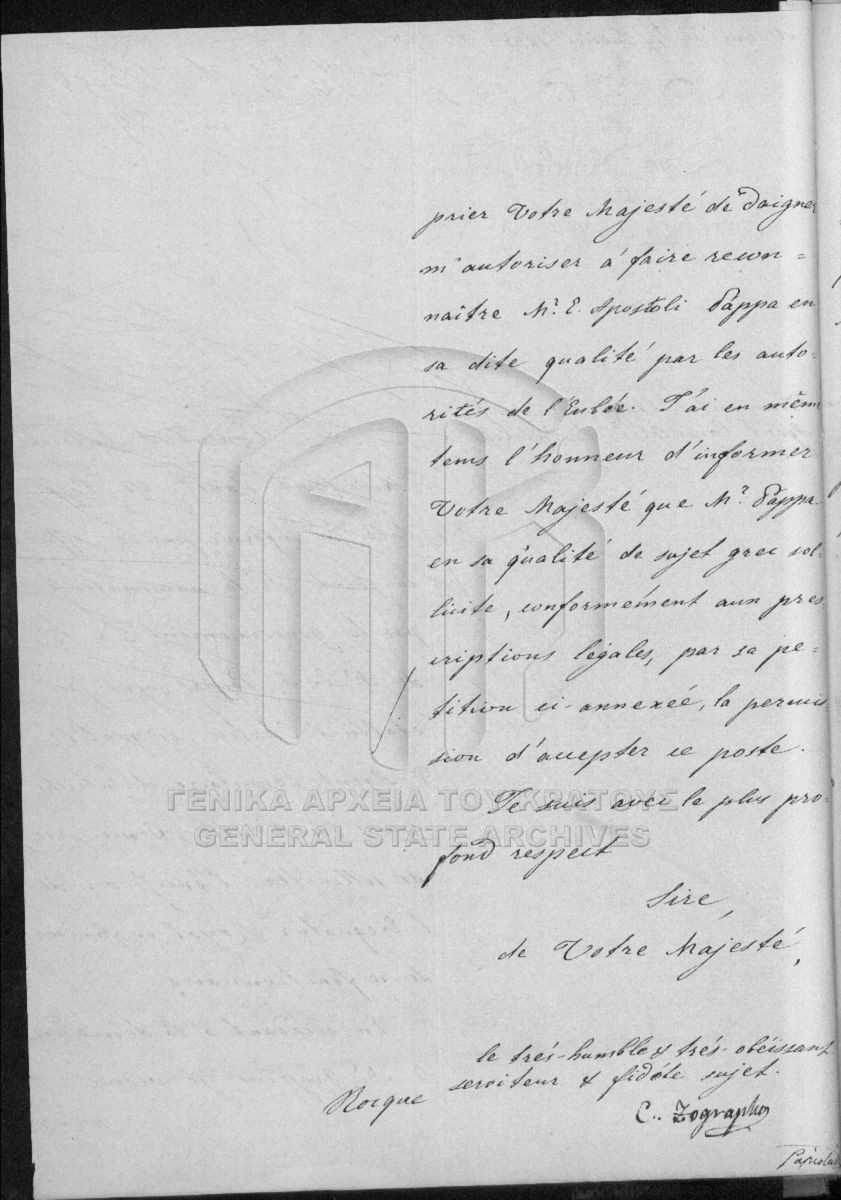 prier Votre Majesté de daigner
m'autoriser à faire recon=
naître Mr. E. Apostoli Pappa en
sa dite qualité par les auto-
rités de l'Eubée. J'ai en même
tems l'honneur d'informer
Votre Majesté que Mr. Pappa
en sa qualité de sujet grec sol-
licite, conformément aux pres
criptions légales, par sa pé-
tition ci-annexée, la permis
sion d'accepter ce poste.
ΓΕΝΙΚΑ ΑΡΧΕΙΑ ΤΟΥ ΚΡΑΤΟΥΣ
GENERAL STATE ARCHIVES
Je suis avec le plus pro-
fond respect
Sire,
de Votre Majesté,
le très-humble & très-obéissant
serviteur & fidèle sujet.
C. Zographos